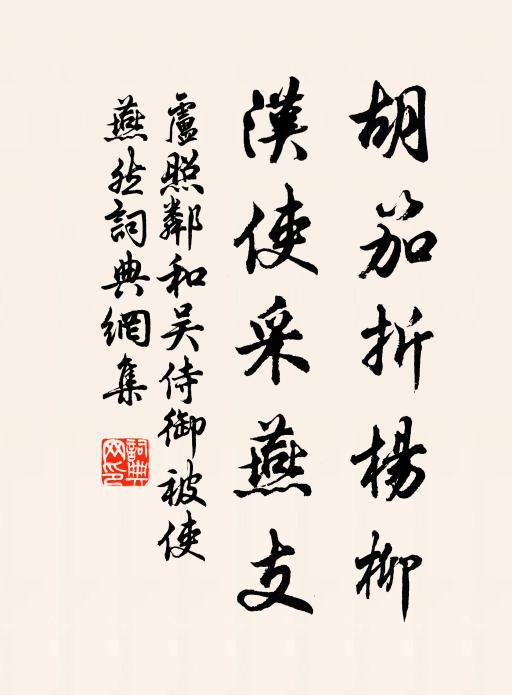 胡笳折楊柳
漢使采燕支
盧照鄰和吴侍御被使
燕然詞典網集
詞典網印